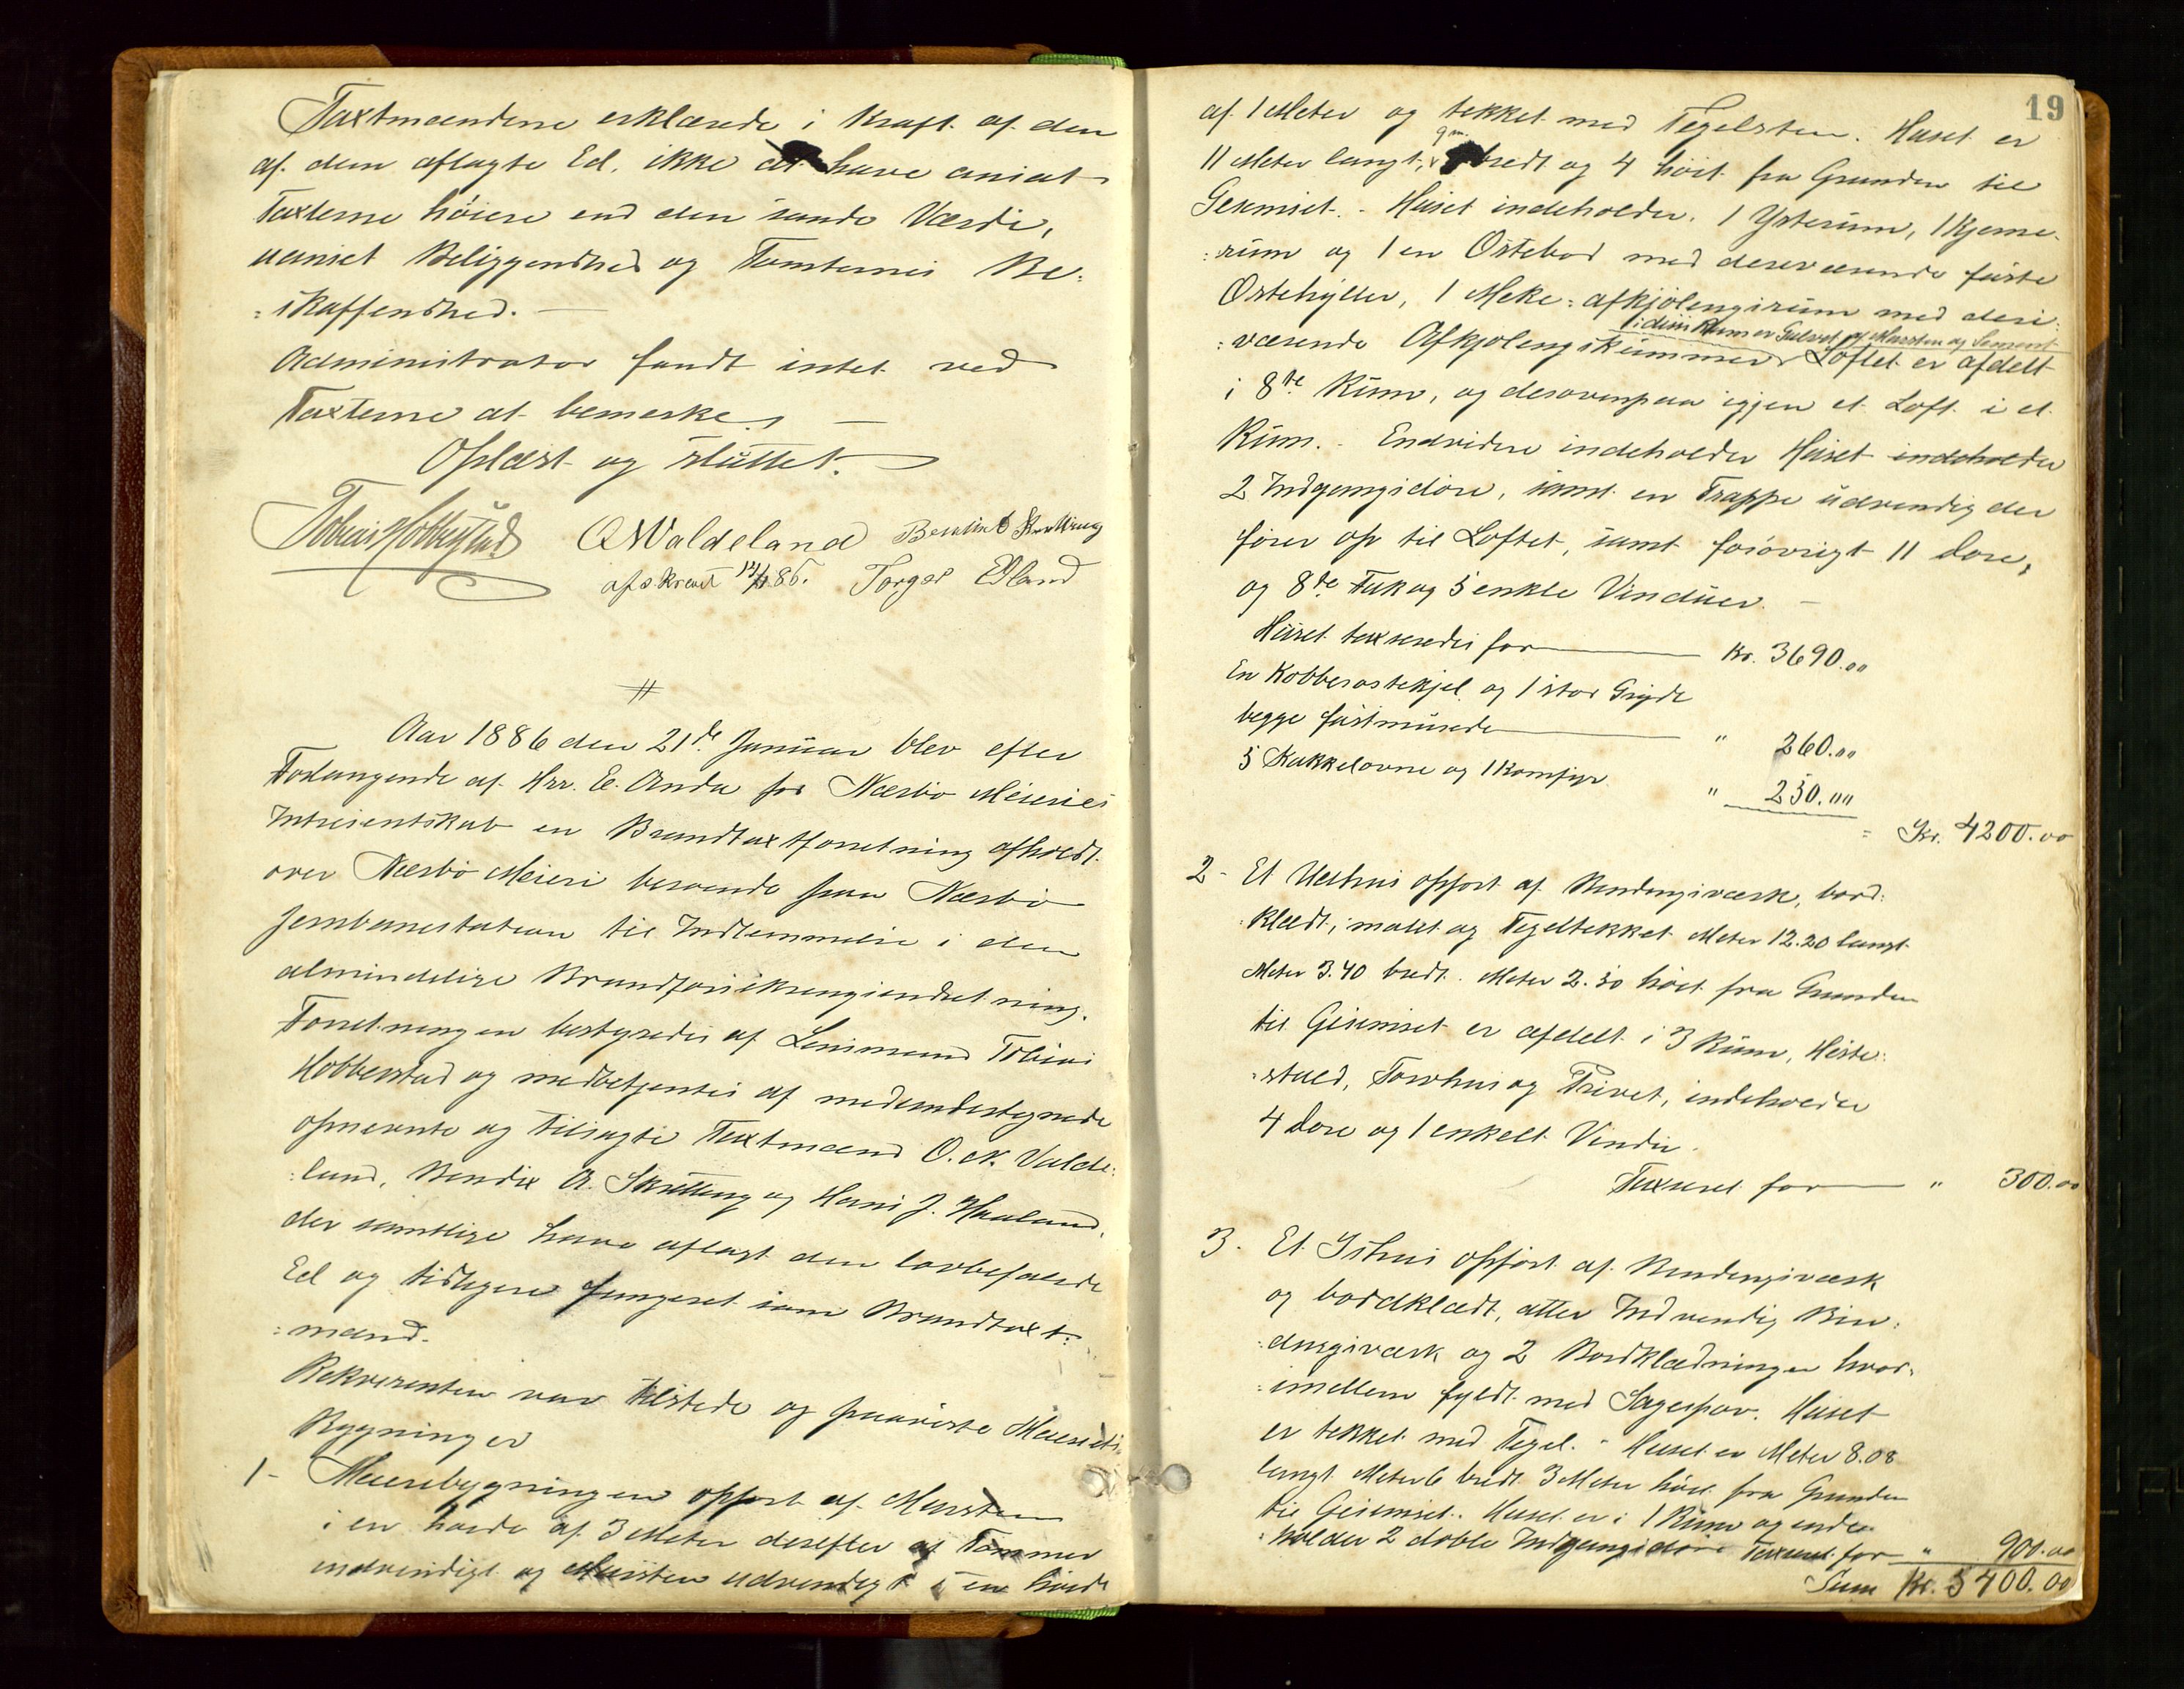 Taxtmændene erklærede i Kraft af den
af dem aflagte Ed, ikke at have ansat
Taxterne höiere end den sande Værdi,
uanset Beliggenhed og Tomternes Be-
:skaffenhed. —
Administrator fandt intet ved
Taxterne at bemerke. —
Oplæst og sluttet.
Tobias Hobberstad O M Valdeland Bendix Skretting
afskrevet 12/1 86. Torger Eland
#
Aar 1886 den 21de Januar blev efter
Forlangende af Hrr. E. Anda for Nærbö Meieries
Intresentskab en Brandtaxtforretning afholdt
over Nærbö Meieri beroende paa Nærbö
Jernbanestation til Indlemmelse i den
almindelige Brandforsikrengsindretning.
Forretningen bestyredes af Lensmand Tobias
Hobberstad og medbetjentes af medundertegnede
opnevnte og tilsagte Taxtmænd O. M. Valde:
:land, Bendix A. Skretting og Hans J. Haaland,
der samtlige have aflagt den lovbefalede
Ed og tidligere fungeret som Brandtaxt:
:mænd.
Rekvirenten var tilstede og paaviste Meieriets
Bygninger
1- Meieribygningen opfort af Mursten
i en höide af 3 Meter derefter af Tömmer
indvendigt og Mursten udvendigt i en höide
19
af 1 Meter og tekket med Tegelsten. Huset er
9 m.
11 Meter langt, bredt og 4 höit fra Grunden til
Gesimset. - Huset indeholder, 1 Ysterum, 1 Kjerne-
:rum og 1 en Ostebod med derværende faste
Ostehylder, 1 Melke:afkjölengsrum med der:
i disse Rum er Gulvet af Mursten og Sement
:værende Afkjölengskummer Loftet er afdelt
i 8te Rum, og derovenpaa igjen et Loft i et
Rum. - Endvidere indeholder Huset indeholder
2 Indgangsdöre, samt en Trappe udvendig der
förer op til Loftet, samt forövrigt 11 Döre,
og 8te Fak og 5 enkle Vinduer. -
Huset taxeredes for — Kr. 3690.00
En Kobberostekjel og 1 stor Gryde
begge fastmurede — " 260.00
5 Kakkelovne og 1 Komfyr " 250.00
= Kr. 4200.00
2- Et Udhus opfort af Bindengsværk, bord:
:klædt, malet og Tegeltekket Meter 12.20 langt
Meter 3.40 bredt. Meter 2.50 höit fra Grunden
til Gesimset er afdelt i 3 Rum, Heste:
:stald, Torvhus og Privet, indeholder
4 Döre og 1 enkelt Vindu.
Taxeret for — " 300.00
3. Et Ishus opfört af Bindengsværk
og bordklædt, atter Indvendig Bin:
:dengsværk og 2 Bordklædninger hvor:
:imellem fyldt med Sagespon. Huset
er tekket med Tegel. - Huset er Meter 8.08
langt Meter 6 bredt 3 Meter höit fra Grunden
til Gesimset. Huset er i 1 Rum og inde:
:holder 2 doble Indgangsdöre Taxeret for " 900.00
Sum Kr. 5400.00